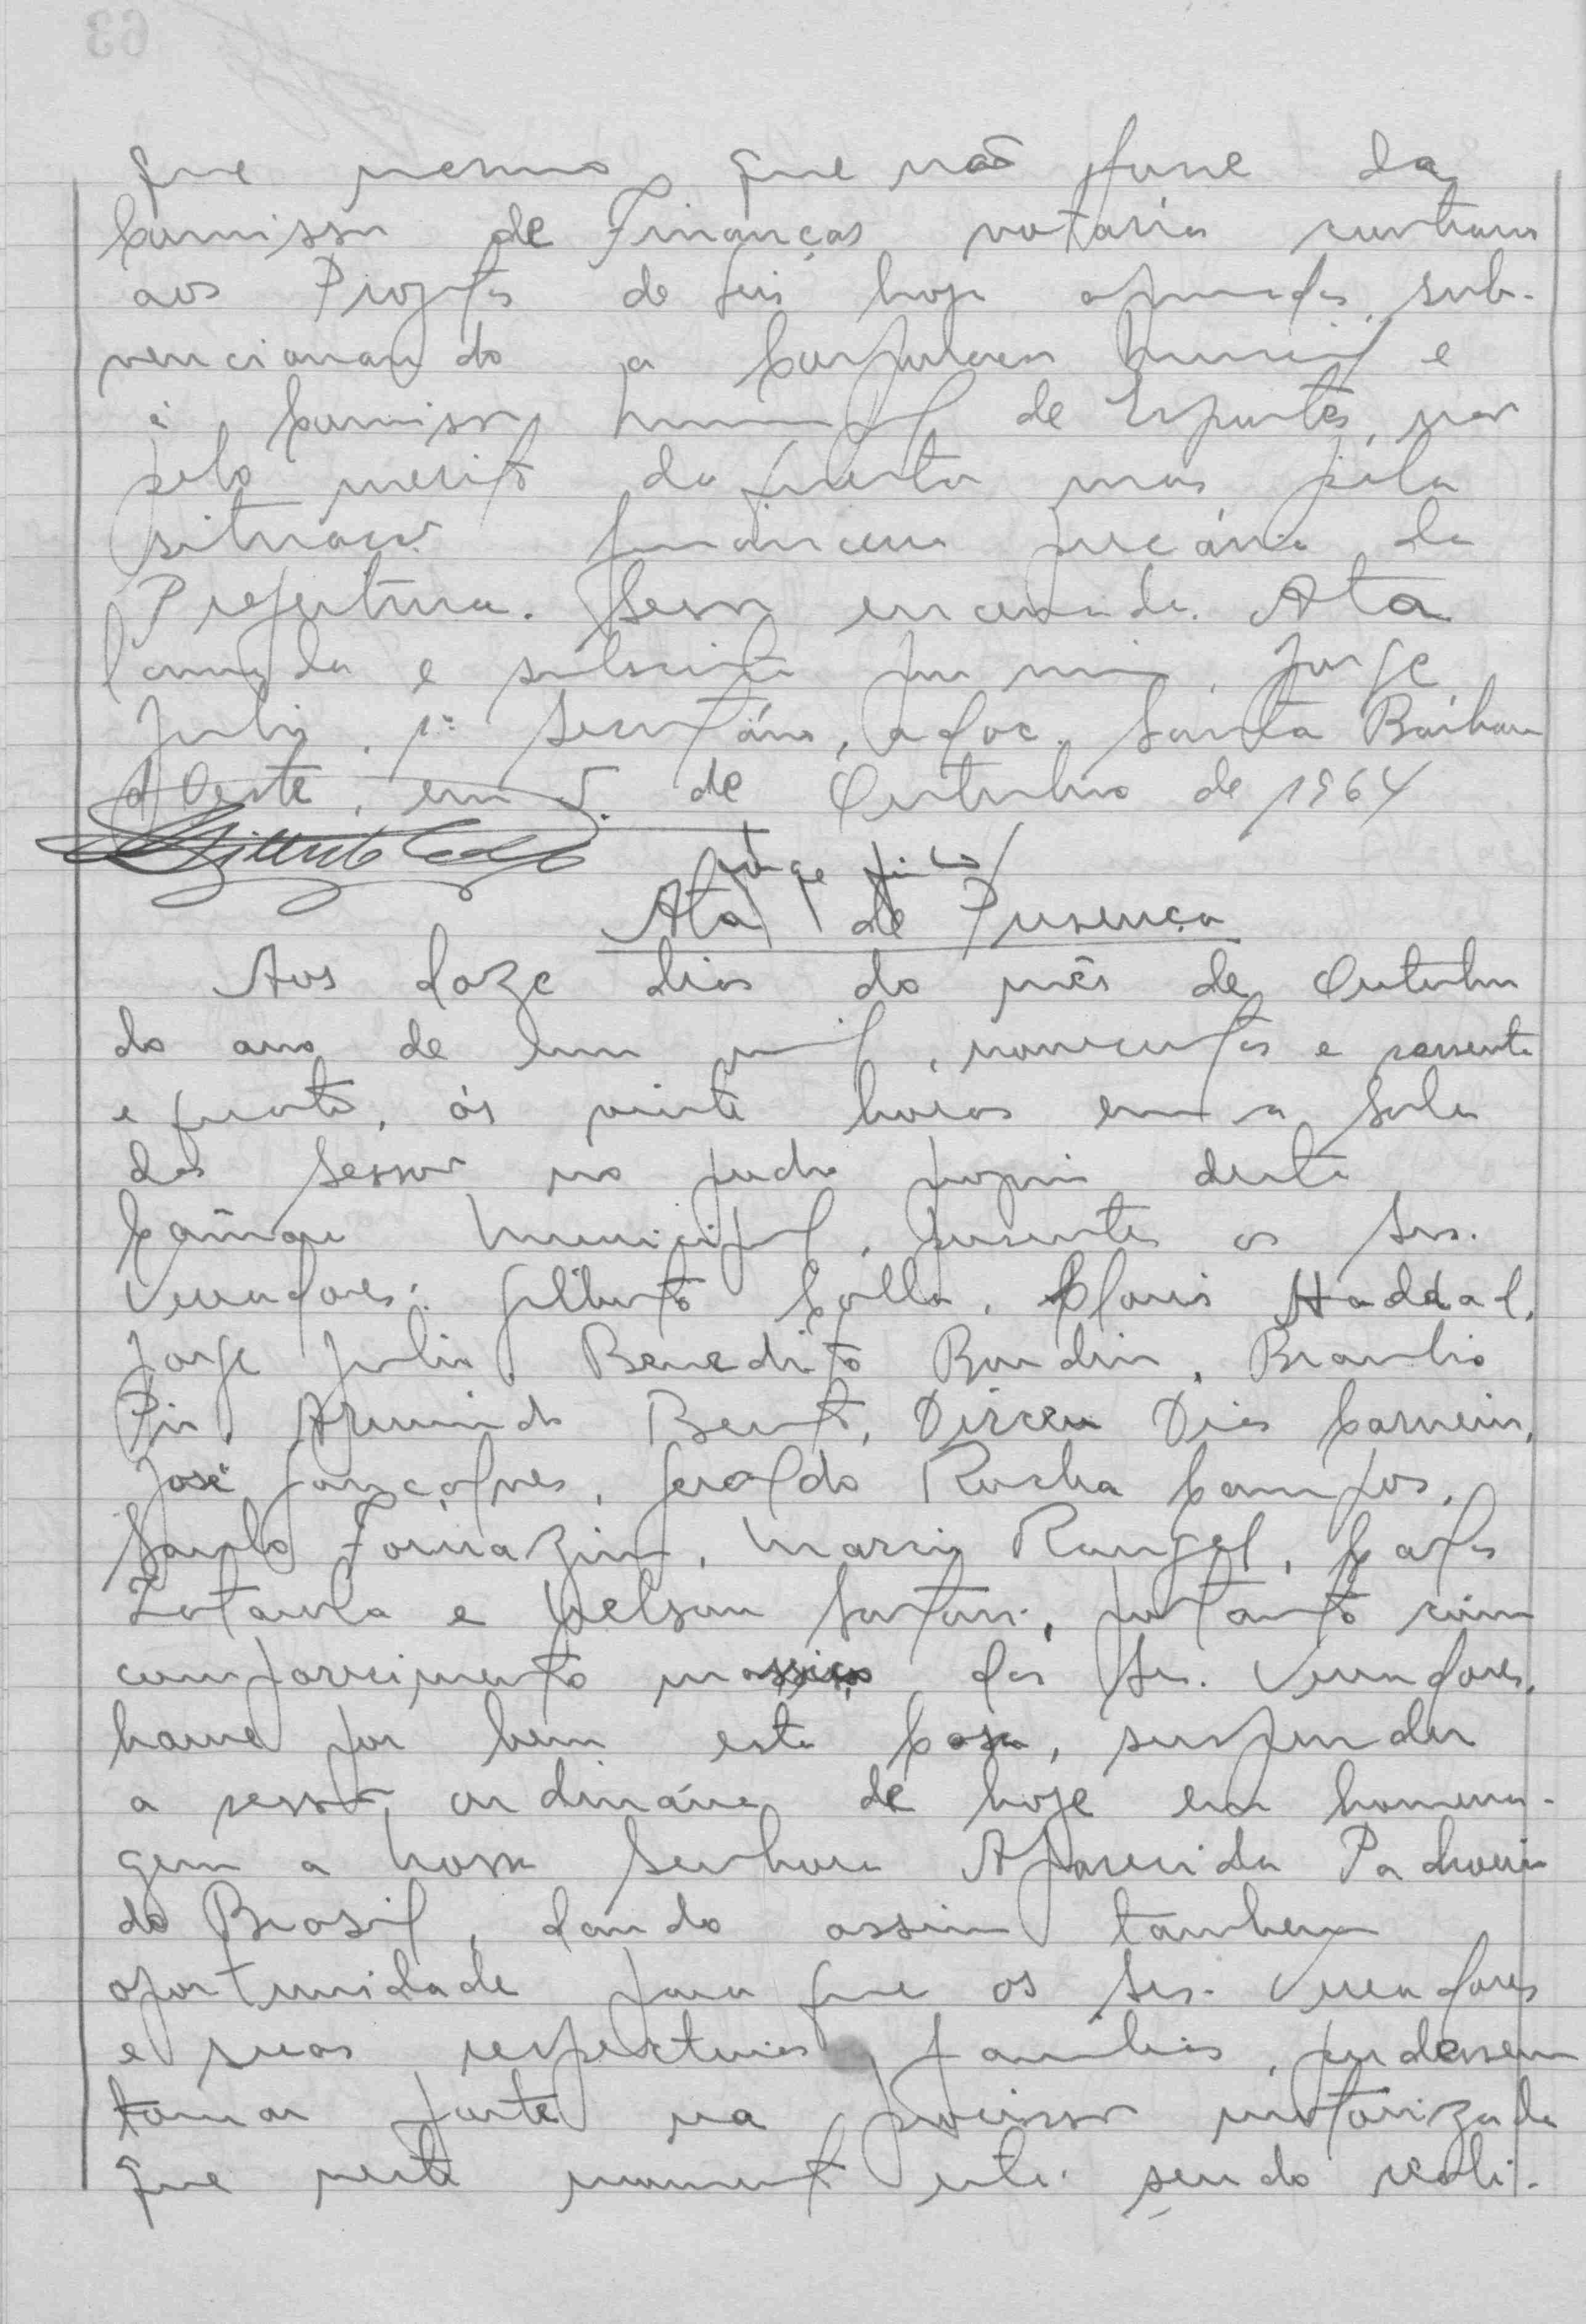 que mesmo que não fosse da
Comissão de Finanças votaria contrario
aos Projetos de Leis hoje aprovados, sub-
vencionando a Corporacao Musical e
á Comissão Municipal de Esportes, não
pelo merito da questa mas pela
situacao financeira precária da
Prefeitura. Sessão encerrada. Ata
lavrada e subscrita por mim, Jorge
Julio, 1º Secretário, adoc. Santa Bárbara
d'Oeste, em 5 de Outubro de 1964
Gilberto Colla
Jorge Julio
Ata de Presença
Aos doze dias do mês de Outubro
do ano de hum mil, novecentos e sessenta
e quatro, ás vinte horas em a Sala
das Sessões no predio proprio desta
Câmara Municipal, presentes os Srs.
Vereadores: Gilberto Colla, Cloris Haddad,
Jorge Julio, Benedito Bondin, Braulio
Pio, Armindo Bento, Dirceu Dias Carneiro,
José Gonçalves, Geraldo Rocha Campos,
Saulo Fornazin, Mario Rangel,
e Nelson portanto com
comparecimento massiço dos Srs. Vereadores,
houve por bem esta Casa, suspender
a sessão ordinária de hoje em homena-
gem a Nossa Senhora Aparecida Padroeira
do Brasil, dando assim tambem
oportunidade para que os Srs. Vereadores
e suas respectivas familias, pudessem
tomar parte na procissão motorizada
que neste momento esta sendo reali-